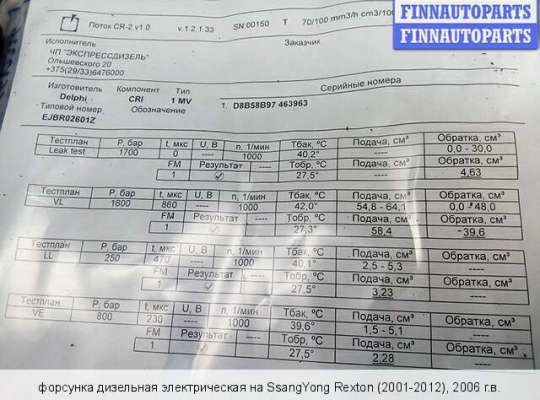 FINNAVTOPARTS
FINNAVTOPARTS
Поток CR-2 v1.0 v.1.2.1.33 SN 00150 T 70/100 mm3/h cm3/100
Исполнитель Заказчик
ЧП "ЭКСПРЕССДИЗЕЛЬ"
Ольшевского 20
+375(29/33)6476000
Изготовитель Компонент Тип Серийные номера
Delphi CRI 1 MV 1. D8B58B97 463963
Типовой номер Обозначение
EJBR02601Z
Тестплан P, бар t, мкс U, В n, 1/мин Тбак, ºC Подача, см³ Обратка, см³
Leak test 1700 0 ---- 1000 40,2° ---- 0,0 - 30,0
FM Результат ---- Тобр, ºC Подача, см³ Обратка, см³
1 27,5° ---- 4,63
Тестплан P, бар t, мкс U, В n, 1/мин Тбак, ºC Подача, см³ Обратка, см³
VL 1600 860 ---- 1000 42,0° 54,8 - 64,1 0,0 - 48,0
FM Результат ---- Тобр, ºC Подача, см³ Обратка, см³
1 27,3° 58,4 39,6
Тестплан P, бар t, мкс U, В n, 1/мин Тбак, ºC Подача, см³ Обратка, см³
LL 250 470 ---- 1000 40,1° 2,5 - 5,3 ----
FM Результат ---- Тобр, ºC Подача, см³ Обратка, см³
1 27,5° 3,23 ----
Тестплан P, бар t, мкс U, В n, 1/мин Тбак, ºC Подача, см³ Обратка, см³
VE 800 230 ---- 1000 39,6° 1,5 - 5,1 ----
FM Результат ---- Тобр, ºC Подача, см³ Обратка, см³
1 27,5° 2,28 ----
форсунка дизельная электрическая на SsangYong Rexton (2001-2012), 2006 г.в.